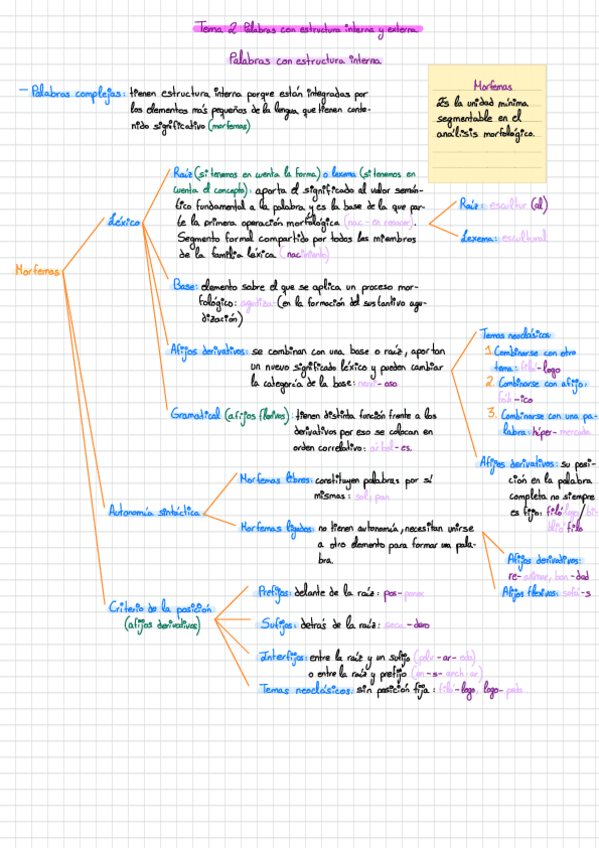 Tema 2 Palabras con estructura interna y externa
Palabras con estructura interna
Morfemas
Es la unidad mínima
segmentable en el
análisis morfológico.
— Palabras complejas: tienen estructura interna porque están integradas por
los elementos más pequeños de la lengua que tienen conte-
nido significativo (morfemas)
Morfemas
Léxico
Raíz (si tenemos en cuenta la forma) o lexema (si tenemos en
cuenta el concepto): aporta el significado al valor semán-
tico fundamental a la palabra y es la base de la que par-
te la primera operación morfológica (nac- en renacer).
Segmento formal compartido por todos los miembros
de la familia léxica (nacimiento)
Raíz: escultur (al)
Lexema: escultural
Base: elemento sobre el que se aplica un proceso mor-
fológico: agudiza- (en la formación del sustantivo agu-
dización)
Afijos derivativos: se combinan con una base o raíz, aportan
un nuevo significado léxico y pueden cambiar
la categoría de la base: -oso
Temas neoclásicos:
1. Combinarse con otro
tema: filó-logo
2. Combinarse con afijo:
-ico
3. Combinarse con una pa-
labra: híper-mercado
Afijos derivativos: su posi-
ción en la palabra
completa no siempre
es fijo: filólogo / bi-
blió filo
Gramatical (afijos flexivos): tienen distinta función frente a los
derivativos por eso se colocan en
orden correlativo: árbol-es.
Autonomía sintáctica
Morfemas libres: constituyen palabras por sí
mismas: sol, pan
Morfemas ligados: no tienen autonomía, necesitan unirse
a otro elemento para formar una pala-
bra.
Afijos derivativos:
re-animar, bon-dad
Afijos flexivos: sofá-s
Criterio de la posición
(afijos derivativos)
Prefijos: delante de la raíz: pos-poner
Sufijos: detrás de la raíz: -dero
Interfijos: entre la raíz y un sufijo (polv-ar-eda)
o entre la raíz y prefijo (en-s-anch-ar)
Temas neoclásicos: sin posición fija: filó-logo, logo-peda